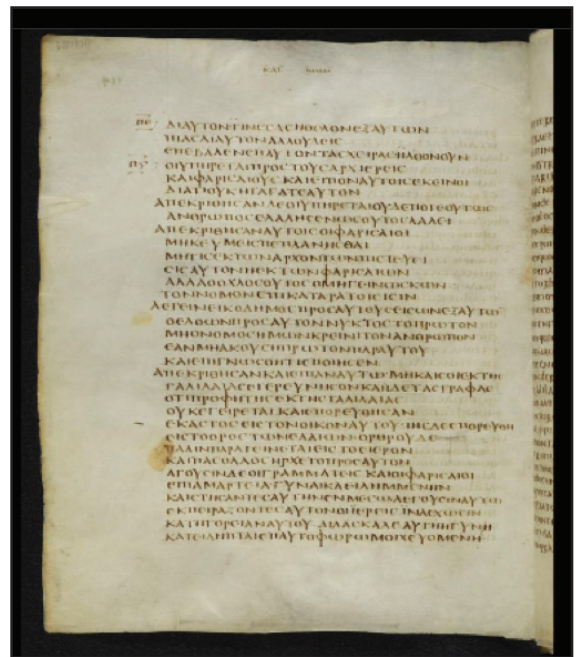 ΚΑΤ ΙΩΑΝ
ΔΙΑΥΤΟΝΤΙΝΕϹΔΕΗΘΕΛΟΝΕΞΑΥΤΩΝ
ΠΙΑϹΑΙΑΥΤΟΝΑΛΛΟΥΔΕΙϹ
ΕΠΕΒΑΛΕΝΕΠΑΥΤΟΝΤΑϹΧΕΙΡΑϹΗΛΘΟΝΟΥΝ
ΟΙΥΠΗΡΕΤΑΙΠΡΟϹΤΟΥϹΑΡΧΙΕΡΕΙϹ
ΚΑΙΦΑΡΙϹΑΙΟΥϹ ΚΑΙΕΙΠΟΝΑΥΤΟΙϹΕΚΕΙΝΟΙ
ΔΙΑΤΙΟΥΚΗΓΑΓΑΤΕΑΥΤΟΝ
ΑΠΕΚΡΙΘΗϹΑΝΔΕΟΙΥΠΗΡΕΤΑΙΟΥΔΕΠΟΤΕΟΥΤΩϹ
ΑΝΘΡΩΠΟϹΕΛΑΛΗϹΕΝΩϹΟΥΤΟϹΛΑΛΕΙ
ΑΠΕΚΡΙΘΗϹΑΝΑΥΤΟΙϹΟΙΦΑΡΙϹΑΙΟΙ
ΜΗΚΕΥΜΕΙϹΠΕΠΛΑΝΗϹΘΑΙ
ΜΗΤΙϹΕΚΤΩΝΑΡΧΟΝΤΩΝΠΙϹΤΕΥΕΙ
ΕΙϹΑΥΤΟΝΗΕΚΤΩΝΦΑΡΙϹΑΙΩΝ
ΑΛΛΑΟΟΧΛΟϹΟΥΤΟϹΟΜΗΓΕΙΝΩϹΚΩΝ
ΤΟΝΝΟΜΟΝΕΠΙΚΑΤΑΡΑΤΟΙΕΙϹΙΝ
ΛΕΓΕΙΝΕΙΚΟΔΗΜΟϹΠΡΟϹΑΥΤΟΥϹΕΙϹΩΝΕΞΑΥΤΩΝ
ΟΕΛΘΩΝΠΡΟϹΑΥΤΟΝΝΥΚΤΟϹΤΟΠΡΩΤΟΝ
ΜΗΟΝΟΜΟϹΗΜΩΝΚΡΕΙΝΙΤΟΝΑΝΘΡΩΠΟΝ
ΕΑΝΜΗΑΚΟΥϹΗΠΡΩΤΟΝΠΑΡΑΥΤΟΥ
ΚΑΙΕΠΙΓΝΩϹΘΗΤΙΕΠΟΙΗϹΕΝ
ΑΠΕΚΡΙΘΗϹΑΝΚΑΙΕΙΠΑΝΑΥΤΩΜΗΚΑΙϹΟΙΕΚΤΗϹ
ΓΑΛΙΛΑΙΑϹΕΙΕΡΕΥΝΗϹΟΝΚΑΙΙΔΕΤΑϹΓΡΑΦΑϹ
ΟΤΙΠΡΟΦΗΤΗϹΕΚΤΗϹΓΑΛΙΛΑΙΑϹ
ΟΥΚΕΓΕΙΡΕΤΑΙΚΑΙΕΠΟΡΕΥΘΗϹΑΝ
ΕΚΑϹΤΟϹΕΙϹΤΟΝΟΙΚΟΝΑΥΤΟΥ ΙΗϹΔΕΕΠΟΡΕΥΘΗ
ΕΙϹΤΟΟΡΟϹΤΩΝΕΛΑΙΩΝ ΟΡΘΡΟΥΔΕ
ΠΑΛΙΝΠΑΡΑΓΕΙΝΕΤΑΙΕΙϹΤΟΙΕΡΟΝ
ΚΑΙΠΑϹΟΛΑΟϹΗΡΧΕΤΟΠΡΟϹΑΥΤΟΝ
ΑΓΟΥϹΙΝΔΕΟΙΓΡΑΜΜΑΤΕΙϹ ΚΑΙΟΙΦΑΡΙϹΑΙΟΙ
ΕΠΙΑΜΑΡΤΕΙΑΓΥΝΑΙΚΑΕΙΛΗΜΜΕΝΗΝ
ΚΑΙϹΤΗϹΑΝΤΕϹΑΥΤΗΝΕΝΜΕϹΩΛΕΓΟΥϹΙΝΑΥΤΩ
ΕΚΠΕΙΡΑΖΟΝΤΕϹΑΥΤΟΝΟΙΙΕΡΕΙϹΙΝΑΕΧΩϹΙΝ
ΚΑΤΗΓΟΡΕΙΑΝΑΥΤΟΥ ΔΙΔΑϹΚΑΛΕΑΥΤΗΗΓΥΝΗ
ΚΑΤΕΙΛΗΠΤΑΙΕΠΑΥΤΟΦΩΡΩΜΟΙΧΕΥΟΜΕΝΗ